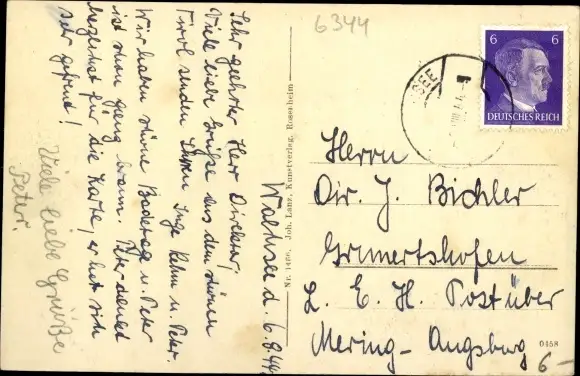 6344
Walchsee d. 6.8.44.
Sehr geehrter Herr Direktor,
Viele liebe Grüße aus dem schönen
Tirol senden Ihnen Inge Rehm u. Peter.
Wir haben schöne Badetage u. Peter
ist schon ganz braun. Peter dankt
herzlichst für die Karte, er hat sich
sehr gefreut!
Viele liebe Grüße
Peter.
Nr. 1486. Joh. Lanz, Kunstverlag, Rosenheim
6 6
DEUTSCHES REICH
Herrn
Dir. J. Bichler
Grunertshofen
L. E. H. Post über
Mering - Augsburg
0458
6-